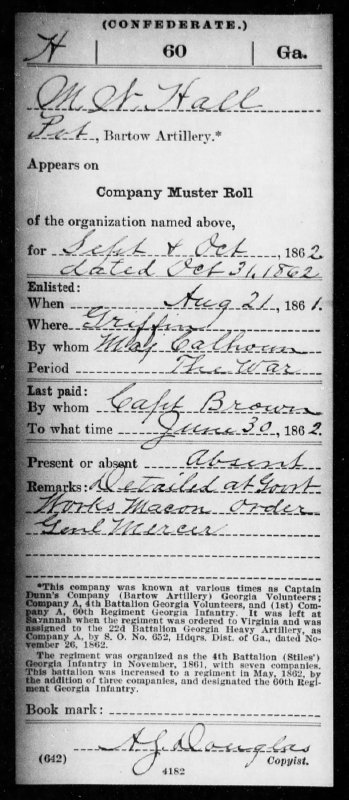 (CONFEDERATE.)
H | 60 | Ga.
M. N. Hall
Pvt, Bartow Artillery.*
Appears on
Company Muster Roll
of the organization named above,
for Sept & Oct, 1862
dated Oct 31, 1862
Enlisted:
When Aug 21, 1861.
Where Griffin
By whom Maj Calhoun
Period The War
Last paid:
By whom Capt Brown
To what time June 30, 1862.
Present or absent Absent
Remarks: Detailed at Govt
Works Macon order
Genl Mercer
*This company was known at various times as Captain
Dunn's Company (Bartow Artillery) Georgia Volunteers;
Company A, 4th Battalion Georgia Volunteers, and (1st) Com-
pany A, 60th Regiment Georgia Infantry. It was left at
Savannah when the regiment was ordered to Virginia and was
assigned to the 22d Battalion Georgia Heavy Artillery, as
Company A, by S. O. No. 652, Hdqrs. Dist. of Ga., dated No-
vember 26, 1862.
The regiment was organized as the 4th Battalion (Stiles')
Georgia Infantry in November, 1861, with seven companies.
This battalion was increased to a regiment in May, 1862, by
the addition of three companies, and designated the 60th Regi-
ment Georgia Infantry.
Book mark:
A J Douglas
(642) Copyist.
4182